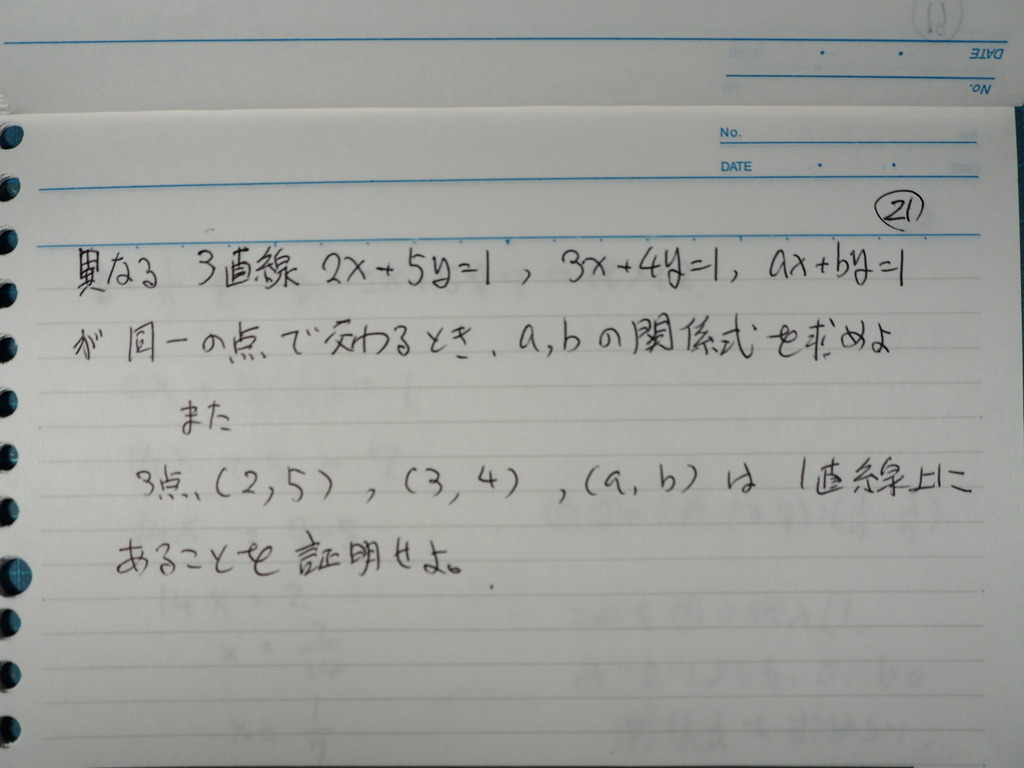 DATE
No.
No.
DATE
21
異なる 3直線 2x+5y=1, 3x+4y=1, ax+by=1
が同一の点で交わるとき、a,bの関係式を求めよ
また
3点、(2,5), (3,4), (a,b)は1直線上に
あることを証明せよ。